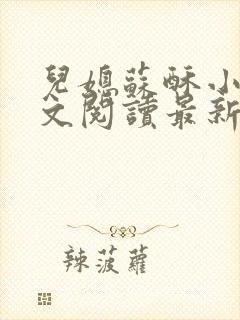 兒媳蘇酥小
文閱讀最新
辣菠蘿